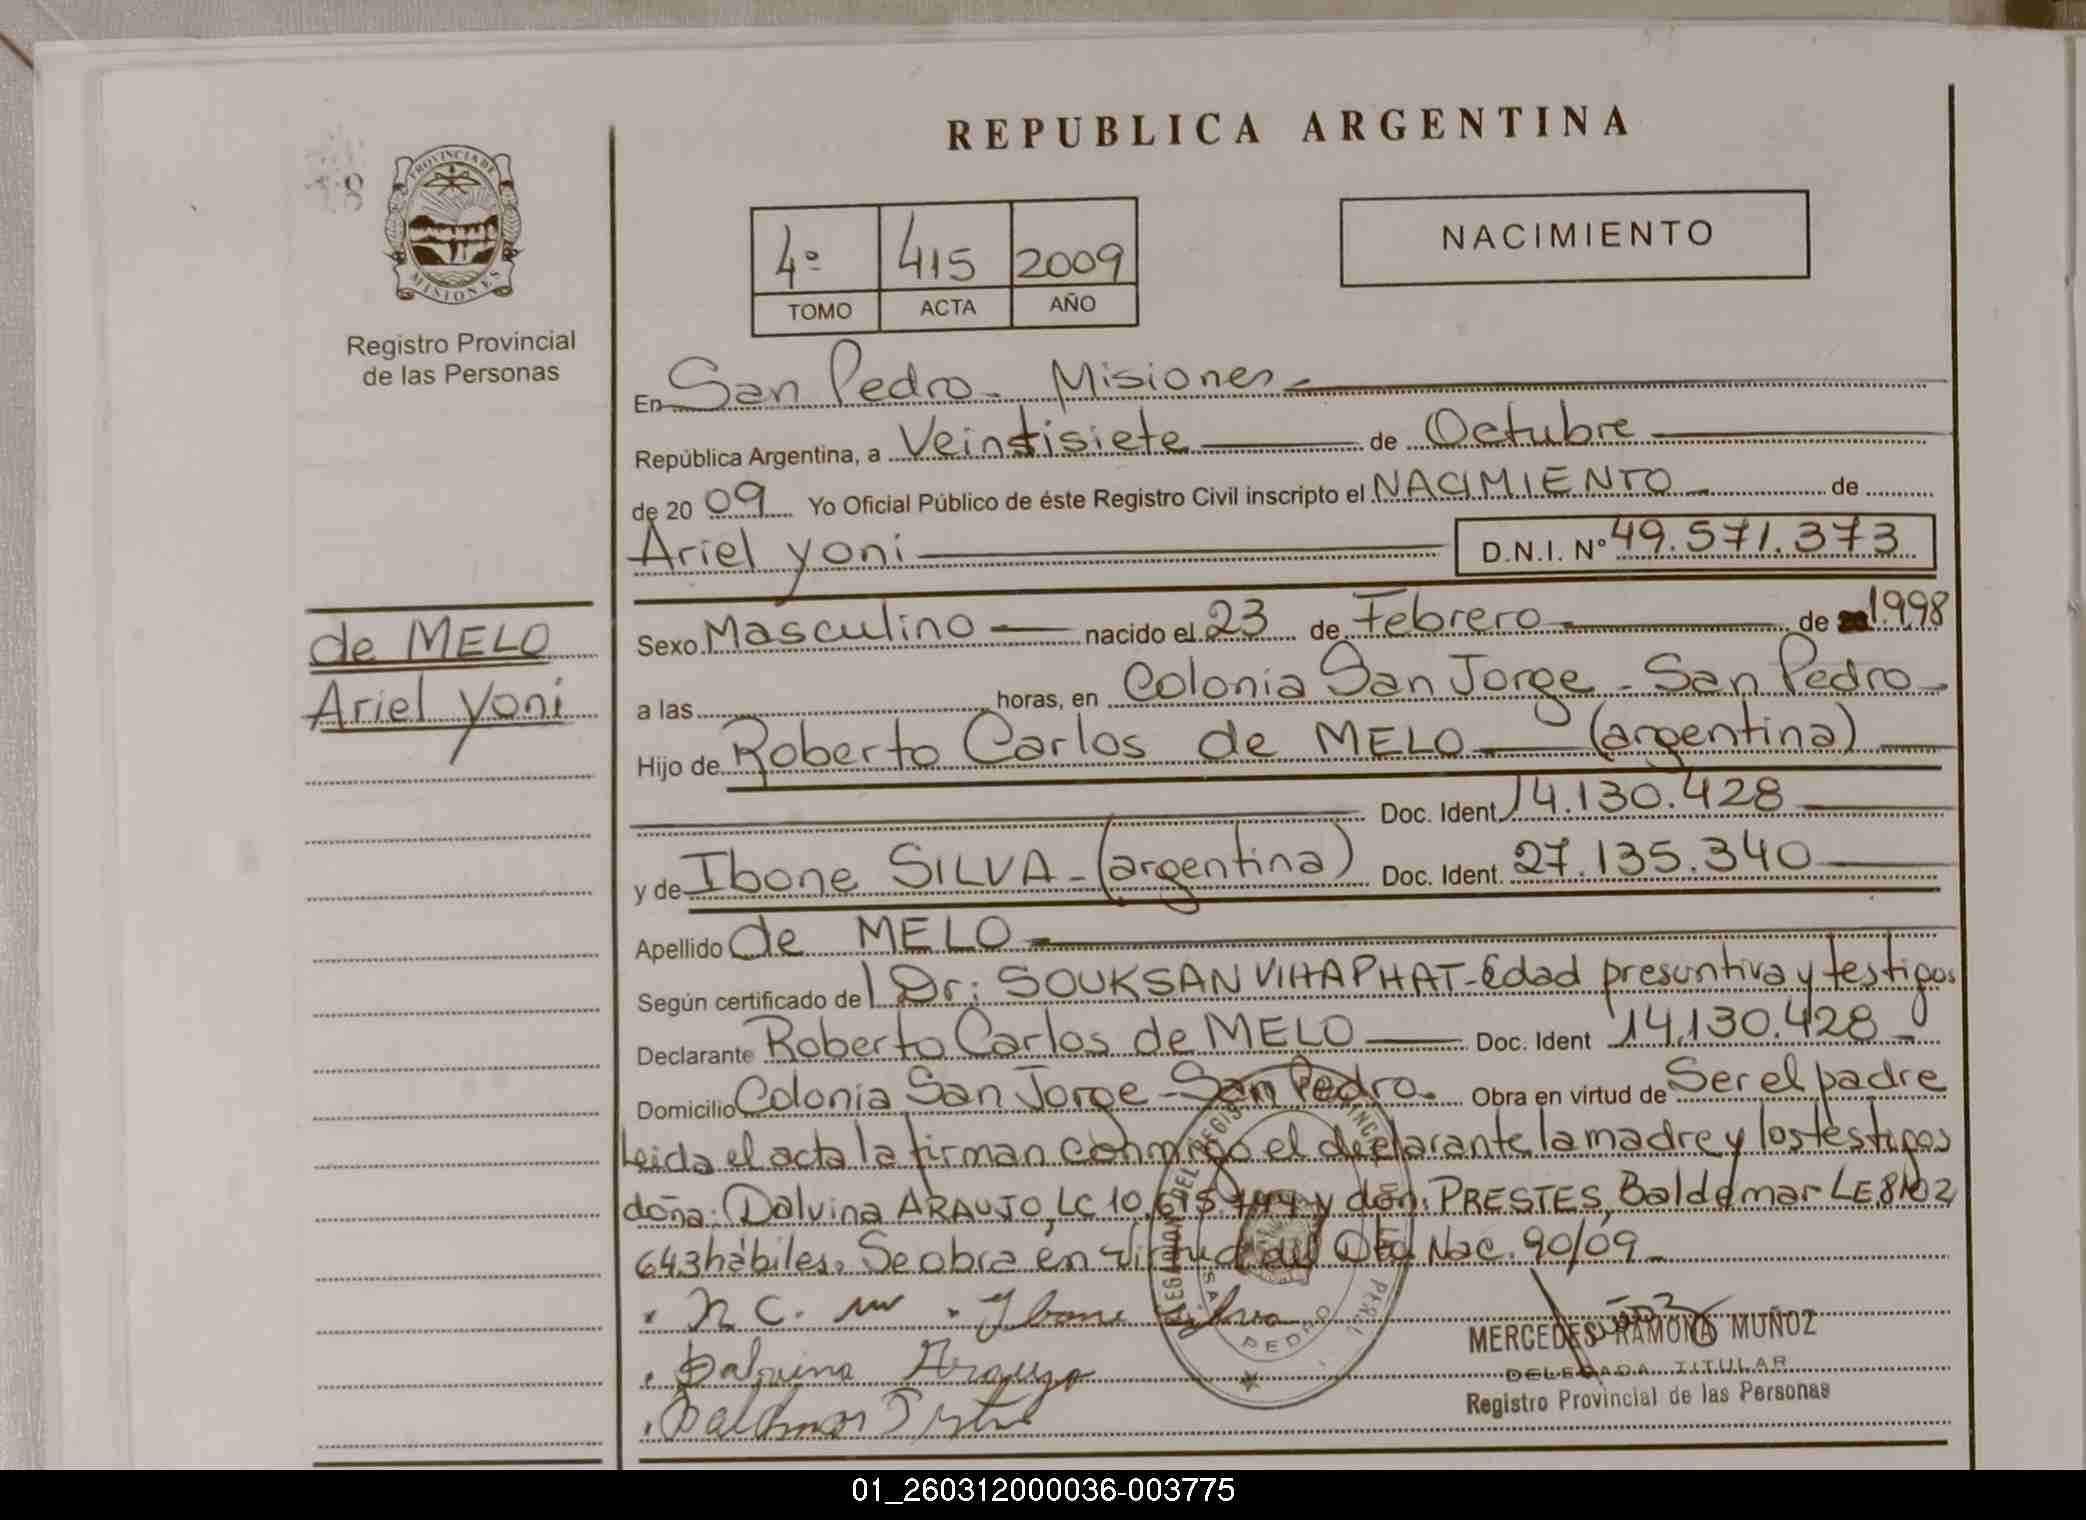 REPUBLICA ARGENTINA
PROVINCIA DE
MISIONES
Registro Provincial
de las Personas
4º 415 2009
TOMO ACTA AÑO
NACIMIENTO
En San Pedro - Misiones
República Argentina, a Veintisiete de Octubre
de 20 09 Yo Oficial Público de éste Registro Civil inscripto el NACIMIENTO de
Ariel Yoni D.N.I. Nº 49.571.373
de MELO
Ariel Yoni
Sexo Masculino nacido el 23 de Febrero de 1998
a las horas, en Colonia San Jorge - San Pedro
Hijo de Roberto Carlos de MELO (argentina)
Doc. Ident. 14.130.428
y de Ibone SILVA - (argentina) Doc. Ident. 27.135.340
Apellido de MELO
Según certificado de Dr: SOUKSAN VIHAPHAT - Edad presuntiva y testigos
Declarante Roberto Carlos de MELO Doc. Ident 14.130.428
Domicilio Colonia San Jorge - San Pedro. Obra en virtud de Ser el padre
Leida el acta la firman conmigo el declarante, la madre y los testigos
doña: Dalvina ARAUJO, LC 10. y don: PRESTES, Baldemar LE 8102
643 hábiles. Se obra en virtud del Dto. Nac. 90/09
Ibone Silva
Dalvina Araujo
MERCEDES RAMONA MUÑOZ
DELEGADA TITULAR
Registro Provincial de las Personas
01_260312000036-003775